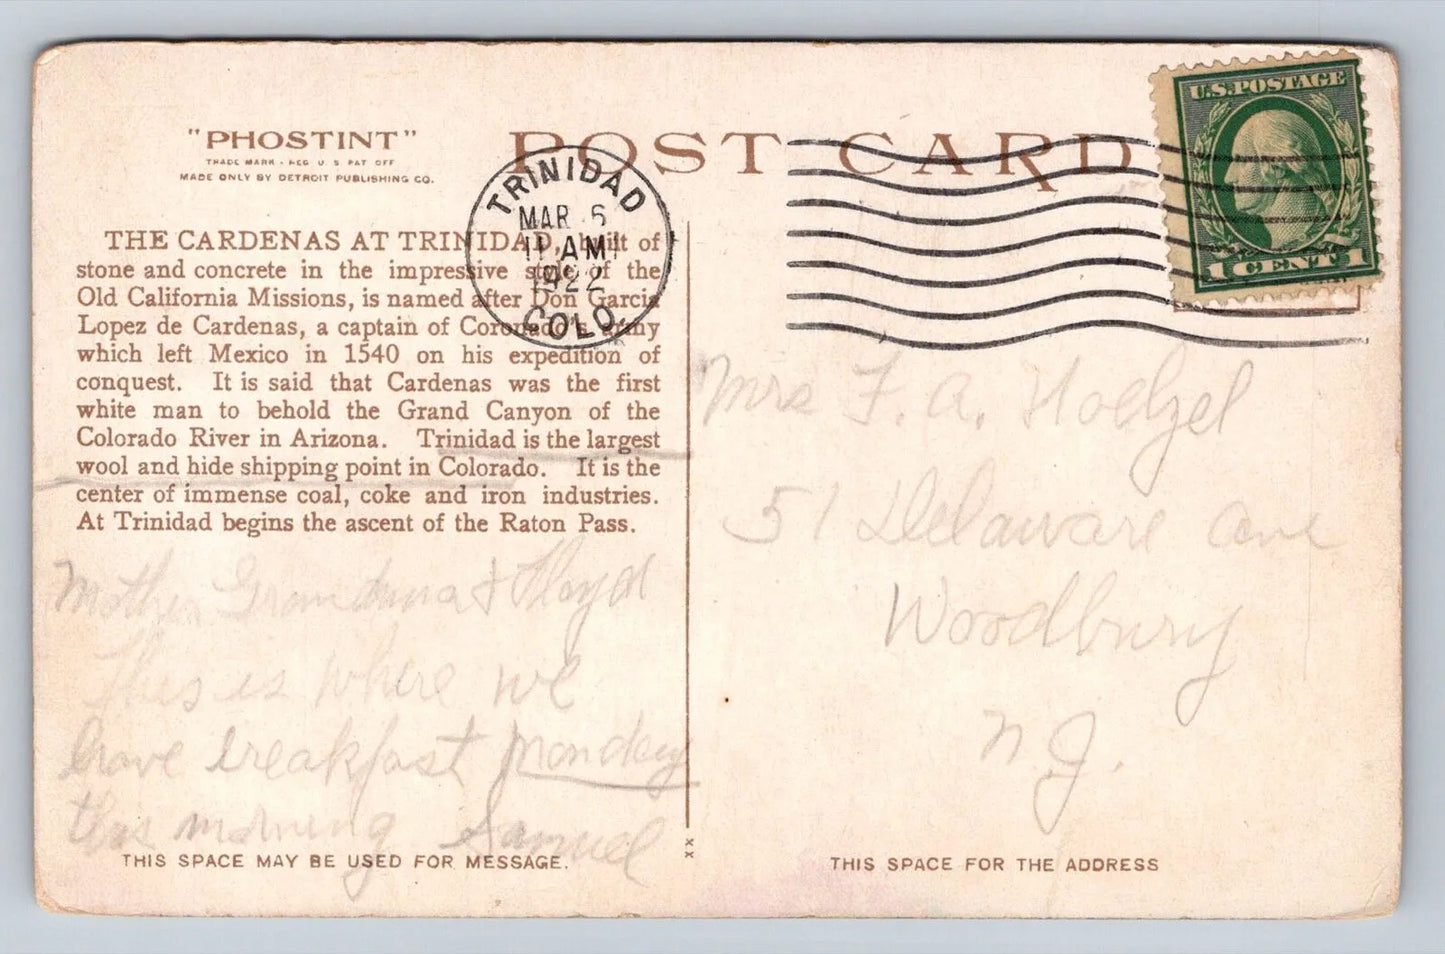 "PHOSTINT"
TRADE MARK - REG U S PAT OFF
MADE ONLY BY DETROIT PUBLISHING CO.
POST CARD
U.S. POSTAGE
1 CENT 1
TRINIDAD
MAR 6
11 AM
1922
COLO.
THE CARDENAS AT TRINIDAD, built of
stone and concrete in the impressive style of the
Old California Missions, is named after Don Garcia
Lopez de Cardenas, a captain of Coronado's army
which left Mexico in 1540 on his expedition of
conquest. It is said that Cardenas was the first
white man to behold the Grand Canyon of the
Colorado River in Arizona. Trinidad is the largest
wool and hide shipping point in Colorado. It is the
center of immense coal, coke and iron industries.
At Trinidad begins the ascent of the Raton Pass.
Mother Grandma & Floyd
This is where we
have breakfast Monday
this morning Samuel
THIS SPACE MAY BE USED FOR MESSAGE.
x x
Mrs F. A. Hoelzel
51 Delaware ave
Woodbury
N. J.
THIS SPACE FOR THE ADDRESS